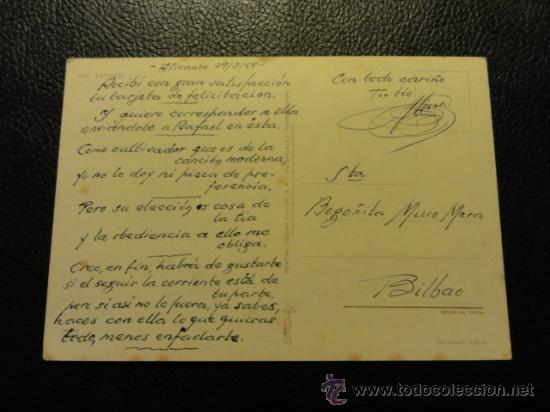 - Alicante 29/3/69 -
Recibí con gran satisfacción
tu tarjeta de felicitacion.
Y quiero corresponder de ella
enviándote a Rafael en ésta.
Como cultivador que es de la
canción moderna,
yo no le doy ni pizca de pre-
ferencia.
Pero su elección es cosa de
la tía
y la obediencia a ello me
obliga.
Creo, en fin, habrá de gustarte
si el seguir la corriente está de
tu parte,
pero si así no lo fuera, ya sabes,
haces con ella lo que quieras
todo, menos enfadarte.
Con todo cariño
Tu tío
Sta
Begoñita Muro Mara
Bilbao
todocoleccion
www.todocoleccion.net